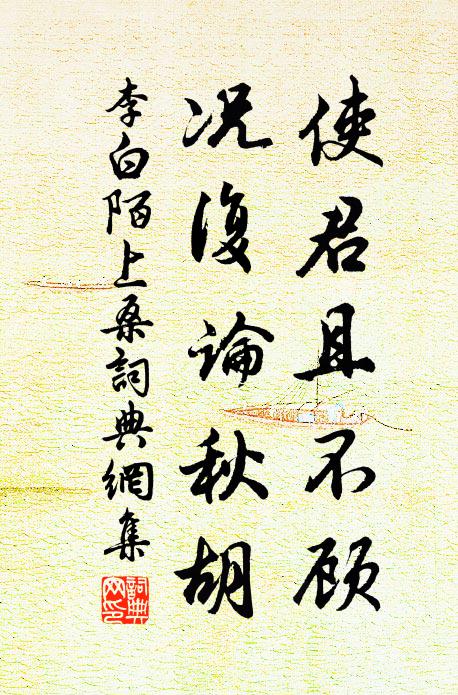 使君且不顾
况復論秋胡
李白陌上桑詞典網集
詞典网印